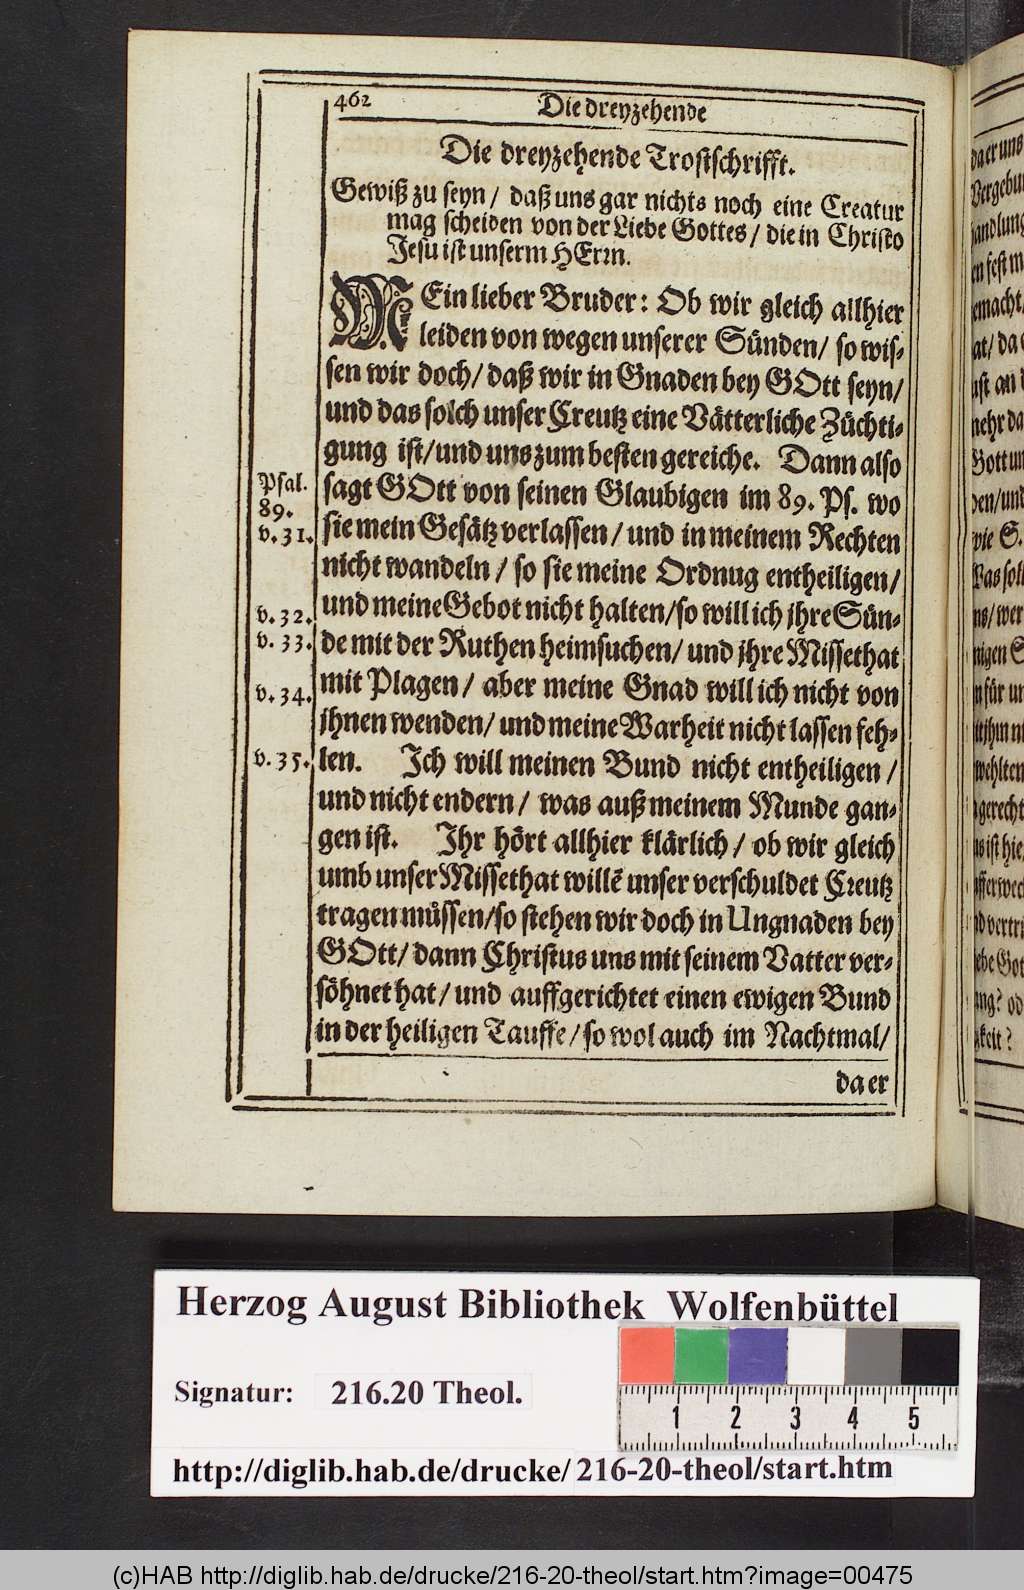 462
Die dreyzehende
Die dreyzehende Trostschrifft.
Gewiß zu seyn / daß uns gar nichts noch eine Creatur
mag scheiden von der Liebe Gottes / die in Christo
Jesu ist unserm HErrn.
MEin lieber Bruder: Ob wir gleich allhier
leiden von wegen unserer Sünden / so wis-
sen wir doch / daß wir in Gnaden bey GOtt seyn /
und das solch unser Creutz eine Vätterliche Züchti-
gung ist / und uns zum besten gereiche. Dann also
sagt GOtt von seinen Glaubigen im 89. Ps. wo
sie mein Gesätz verlassen / und in meinem Rechten
nicht wandeln / so sie meine Ordnug entheiligen /
und meine Gebot nicht halten / so will ich jhre Sün-
de mit der Ruthen heimsuchen / und jhre Missethat
mit Plagen / aber meine Gnad will ich nicht von
jhnen wenden / und meine Warheit nicht lassen feh-
len. Ich will meinen Bund nicht entheiligen /
und nicht endern / was auß meinem Munde gan-
gen ist. Ihr hört allhier klärlich / ob wir gleich
umb unser Missethat willē unser verschuldet Creutz
tragen müssen / so stehen wir doch in Ungnaden bey
GOtt / dann Christus uns mit seinem Vatter ver-
söhnet hat / und auffgerichtet einen ewigen Bund
in der heiligen Tauffe / so wol auch im Nachtmal /
da er
Psal.
89.
v. 31.
v. 32.
v. 33.
v. 34.
v. 35.
Herzog August Bibliothek Wolfenbüttel
Signatur: 216.20 Theol.
1 2 3 4 5
http://diglib.hab.de/drucke/216-20-theol/start.htm
(c)HAB http://diglib.hab.de/drucke/216-20-theol/start.htm?image=00475